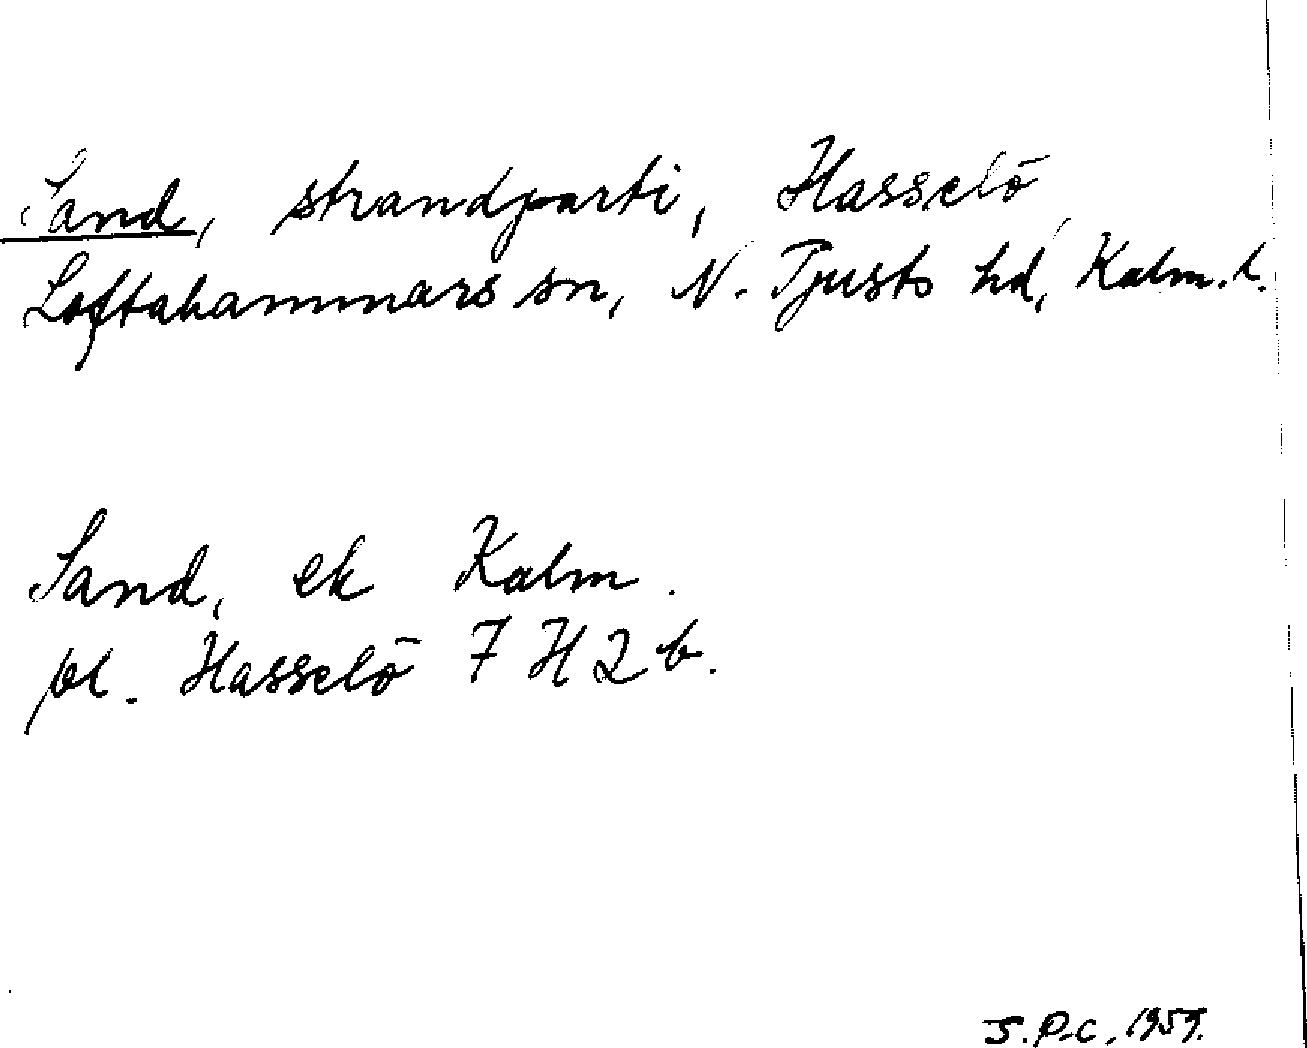 Sand, strandparti, Hasselö,
Loftahammars sn, N. Tjusts hd, Kalm. l.
Sand, ek Kalm.
bl. Hasselö 7 H 2 b.
J.P-C, 1959.